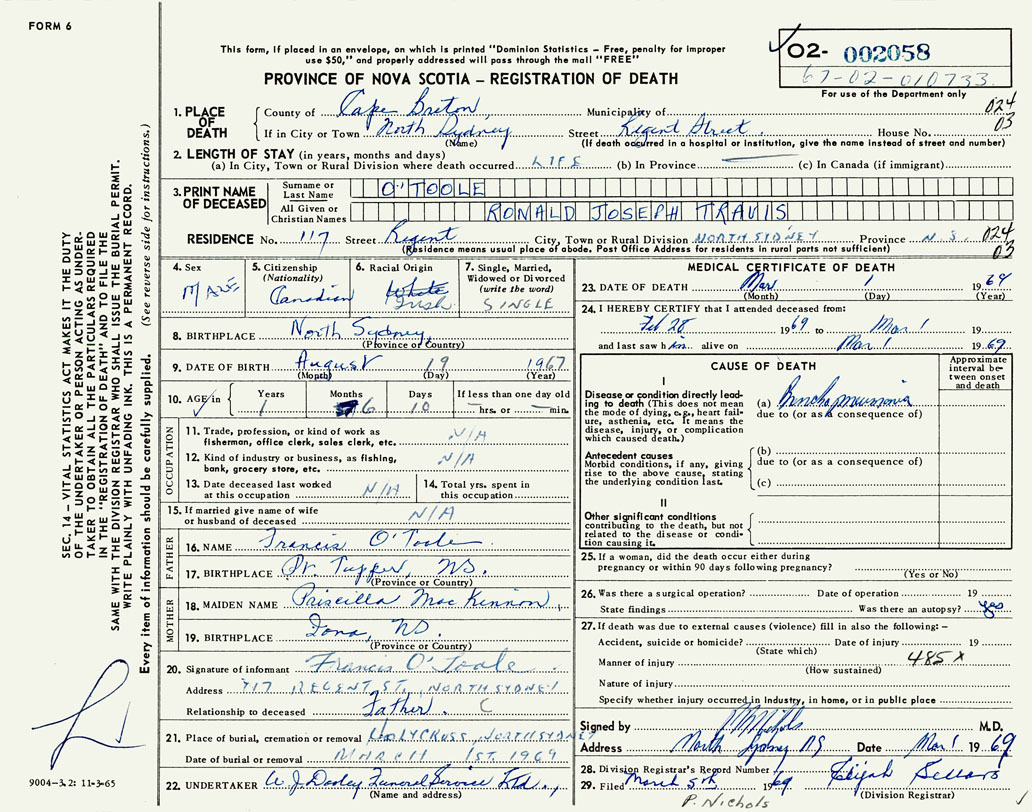 FORM 6
This form, if placed in an envelope, on which is printed "Dominion Statistics – Free, penalty for improper
use $50," and properly addressed will pass through the mail "FREE"
PROVINCE OF NOVA SCOTIA – REGISTRATION OF DEATH
O2- 002058
67-02-010733
For use of the Department only
1. PLACE OF DEATH
County of Cape Breton Municipality of 024
If in City or Town North Sydney Street Regent Street House No. 03
(Name) (If death occurred in a hospital or institution, give the name instead of street and number)
2. LENGTH OF STAY (in years, months and days)
(a) In City, Town or Rural Division where death occurred LIFE (b) In Province (c) In Canada (if immigrant)
3. PRINT NAME OF DECEASED
Surname or Last Name O'TOOLE
All Given or Christian Names RONALD JOSEPH TRAVIS
RESIDENCE No. 117 Street Regent City, Town or Rural Division NORTH SYDNEY Province N.S. 024
(Residence means usual place of abode. Post Office Address for residents in rural parts not sufficient) 03
4. Sex MALE
5. Citizenship (Nationality) Canadian
6. Racial Origin White Irish
7. Single, Married, Widowed or Divorced (write the word) SINGLE
8. BIRTHPLACE North Sydney
(Province or Country)
9. DATE OF BIRTH August 19 1967
(Month) (Day) (Year)
10. AGE in Years 1 Months 6 Days 10 If less than one day old hrs. or min.
OCCUPATION
11. Trade, profession, or kind of work as fisherman, office clerk, sales clerk, etc. N/A
12. Kind of industry or business, as fishing, bank, grocery store, etc. N/A
13. Date deceased last worked at this occupation N/A
14. Total yrs. spent in this occupation
15. If married give name of wife or husband of deceased N/A
FATHER
16. NAME Francis O'Toole
17. BIRTHPLACE Pt. Tupper, NS.
(Province or Country)
MOTHER
18. MAIDEN NAME Priscilla MacKinnon
19. BIRTHPLACE Iona, NS.
(Province or Country)
20. Signature of informant Francis O'Toole
Address 117 REGENT ST. NORTH SYDNEY
Relationship to deceased Father. C
21. Place of burial, cremation or removal HOLYCROSS, NORTH SYDNEY
Date of burial or removal MARCH 1ST. 1969
22. UNDERTAKER W. J. Dooley Funeral Service Ltd.
(Name and address)
MEDICAL CERTIFICATE OF DEATH
23. DATE OF DEATH Mar 1 1969
(Month) (Day) (Year)
24. I HEREBY CERTIFY that I attended deceased from:
Feb 28 1969 to Mar 1 19
and last saw him alive on Mar 1 1969
CAUSE OF DEATH
Approximate interval between onset and death
I
Disease or condition directly leading to death (This does not mean the mode of dying, e.g., heart failure, asthenia, etc. It means the disease, injury, or complication which caused death.)
(a) Bronchopneumonia
due to (or as a consequence of)
Antecedent causes
Morbid conditions, if any, giving rise to the above cause, stating the underlying condition last.
(b)
due to (or as a consequence of)
(c)
II
Other significant conditions
contributing to the death, but not related to the disease or condition causing it.
25. If a woman, did the death occur either during pregnancy or within 90 days following pregnancy?
(Yes or No)
26. Was there a surgical operation? Date of operation 19
State findings Was there an autopsy? yes
27. If death was due to external causes (violence) fill in also the following: –
Accident, suicide or homicide? Date of injury 19
(State which)
Manner of injury 485X
(How sustained)
Nature of injury
Specify whether injury occurred in industry, in home, or in public place
Signed by P Nichols M.D.
Address North Sydney NS Date Mar 1 1969
28. Division Registrar's Record Number
29. Filed March 5th 1969 Elijah Sellars
(Division Registrar)
P. Nichols
SEC. 14 – VITAL STATISTICS ACT MAKES IT THE DUTY
OF THE UNDERTAKER OR PERSON ACTING AS UNDER-
TAKER TO OBTAIN ALL THE PARTICULARS REQUIRED
IN THE "REGISTRATION OF DEATH" AND TO FILE THE
SAME WITH THE DIVISION REGISTRAR WHO SHALL ISSUE THE BURIAL PERMIT.
WRITE PLAINLY WITH UNFADING INK. THIS IS A PERMANENT RECORD.
Every item of information should be carefully supplied. (See reverse side for instructions.)
9004–3.2: 11-3-65